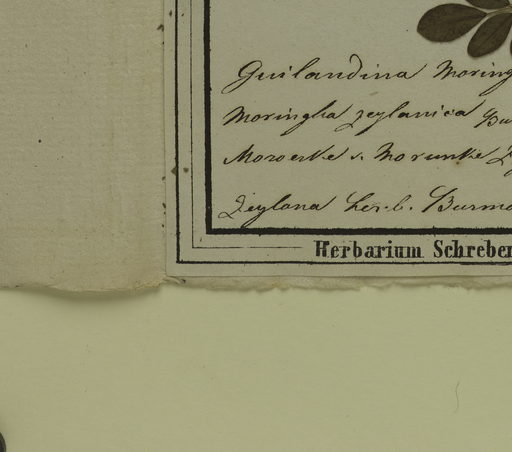 Guilandina Moring
Moringha zeylanica Bu
Moroerke s. Morunke
Zeylona herb. Burma
Herbarium Schreber